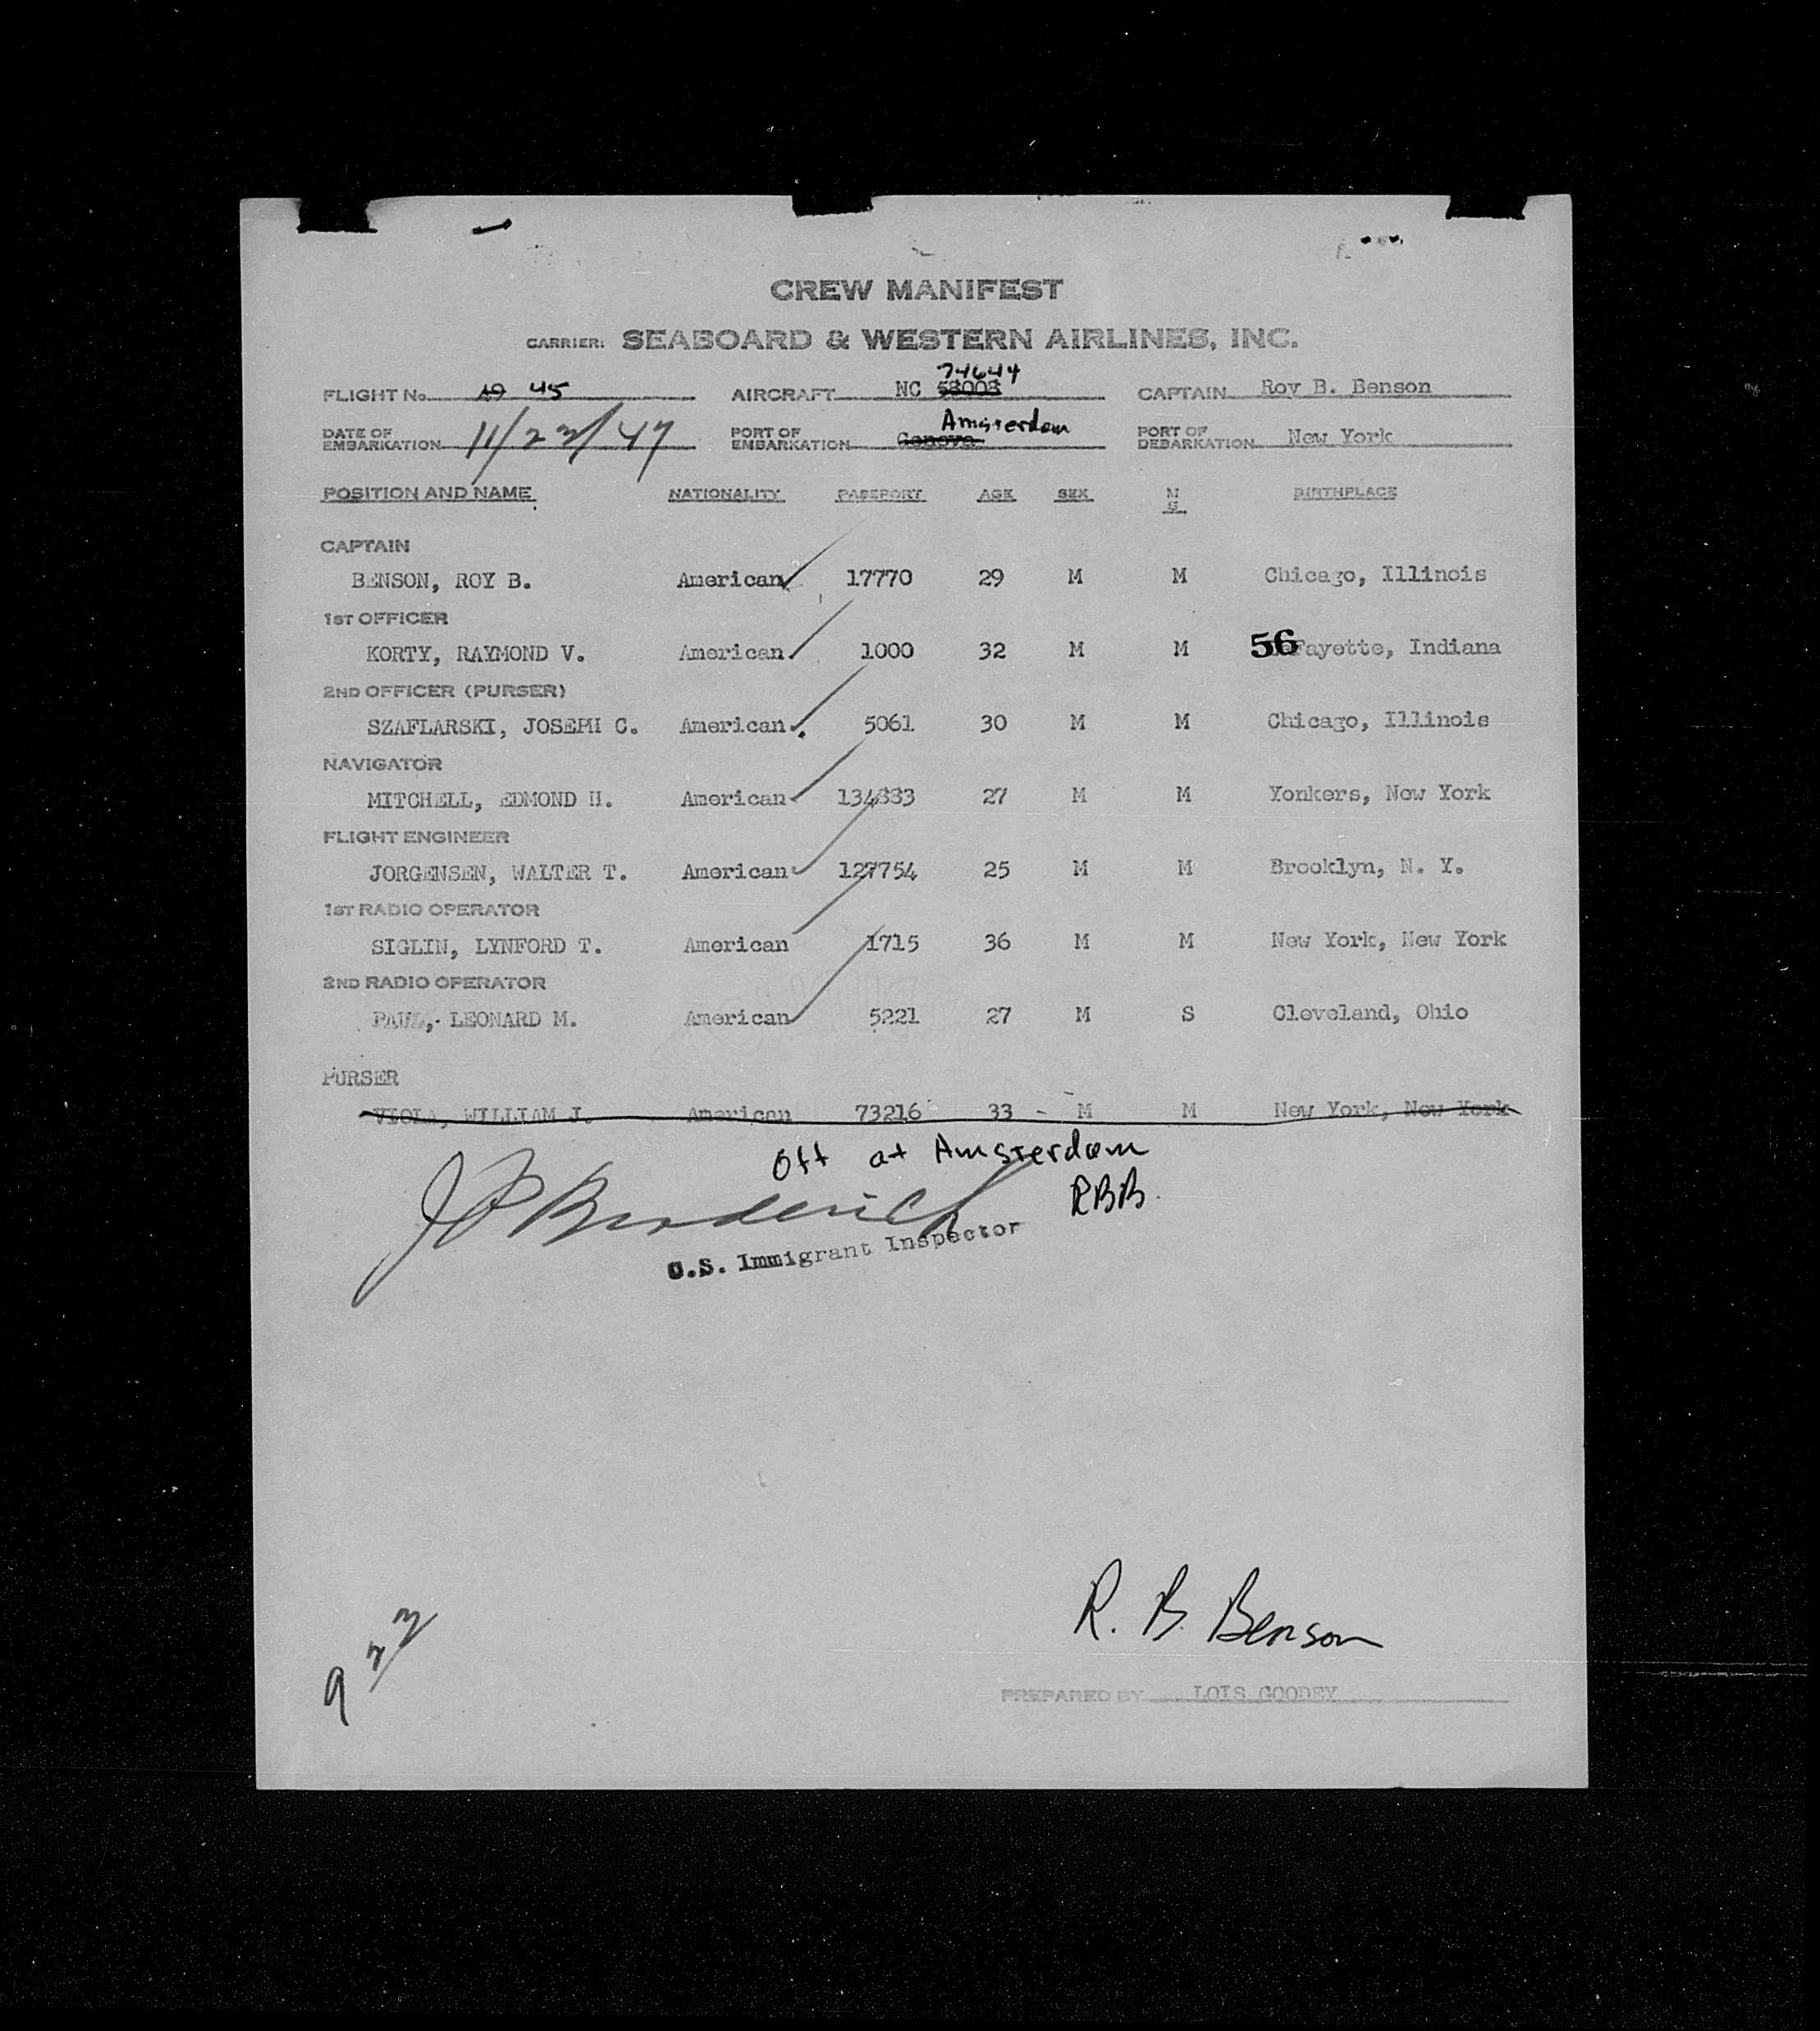 CREW MANIFEST
CARRIER: SEABOARD & WESTERN AIRLINES, INC.
74644
FLIGHT No. 19 45 AIRCRAFT NC 58008 CAPTAIN Roy B. Benson
Amsterdam
DATE OF EMBARKATION 11/22/47 PORT OF EMBARKATION Geneva PORT OF DEBARKATION New York
POSITION AND NAME NATIONALITY PASSPORT AGE SEX M S BIRTHPLACE
CAPTAIN
BENSON, ROY B. American 17770 29 M M Chicago, Illinois
1ST OFFICER
KORTY, RAYMOND V. American 1000 32 M M 56 Fayette, Indiana
2ND OFFICER (PURSER)
SZAFLARSKI, JOSEPH C. American 5061 30 M M Chicago, Illinois
NAVIGATOR
MITCHELL, EDMOND H. American 134883 27 M M Yonkers, New York
FLIGHT ENGINEER
JORGENSEN, WALTER T. American 127754 25 M M Brooklyn, N. Y.
1ST RADIO OPERATOR
SIGLIN, LYNFORD T. American 1715 36 M M New York, New York
2ND RADIO OPERATOR
PAUL, LEONARD M. American 5221 27 M S Cleveland, Ohio
PURSER
VIOLA, WILLIAM J. American 73216 33 - M M New York, New York
Off at Amsterdam
RBB.
J P Broderick
U.S. Immigrant Inspector
R. B. Benson
PREPARED BY LOIS GOODEY